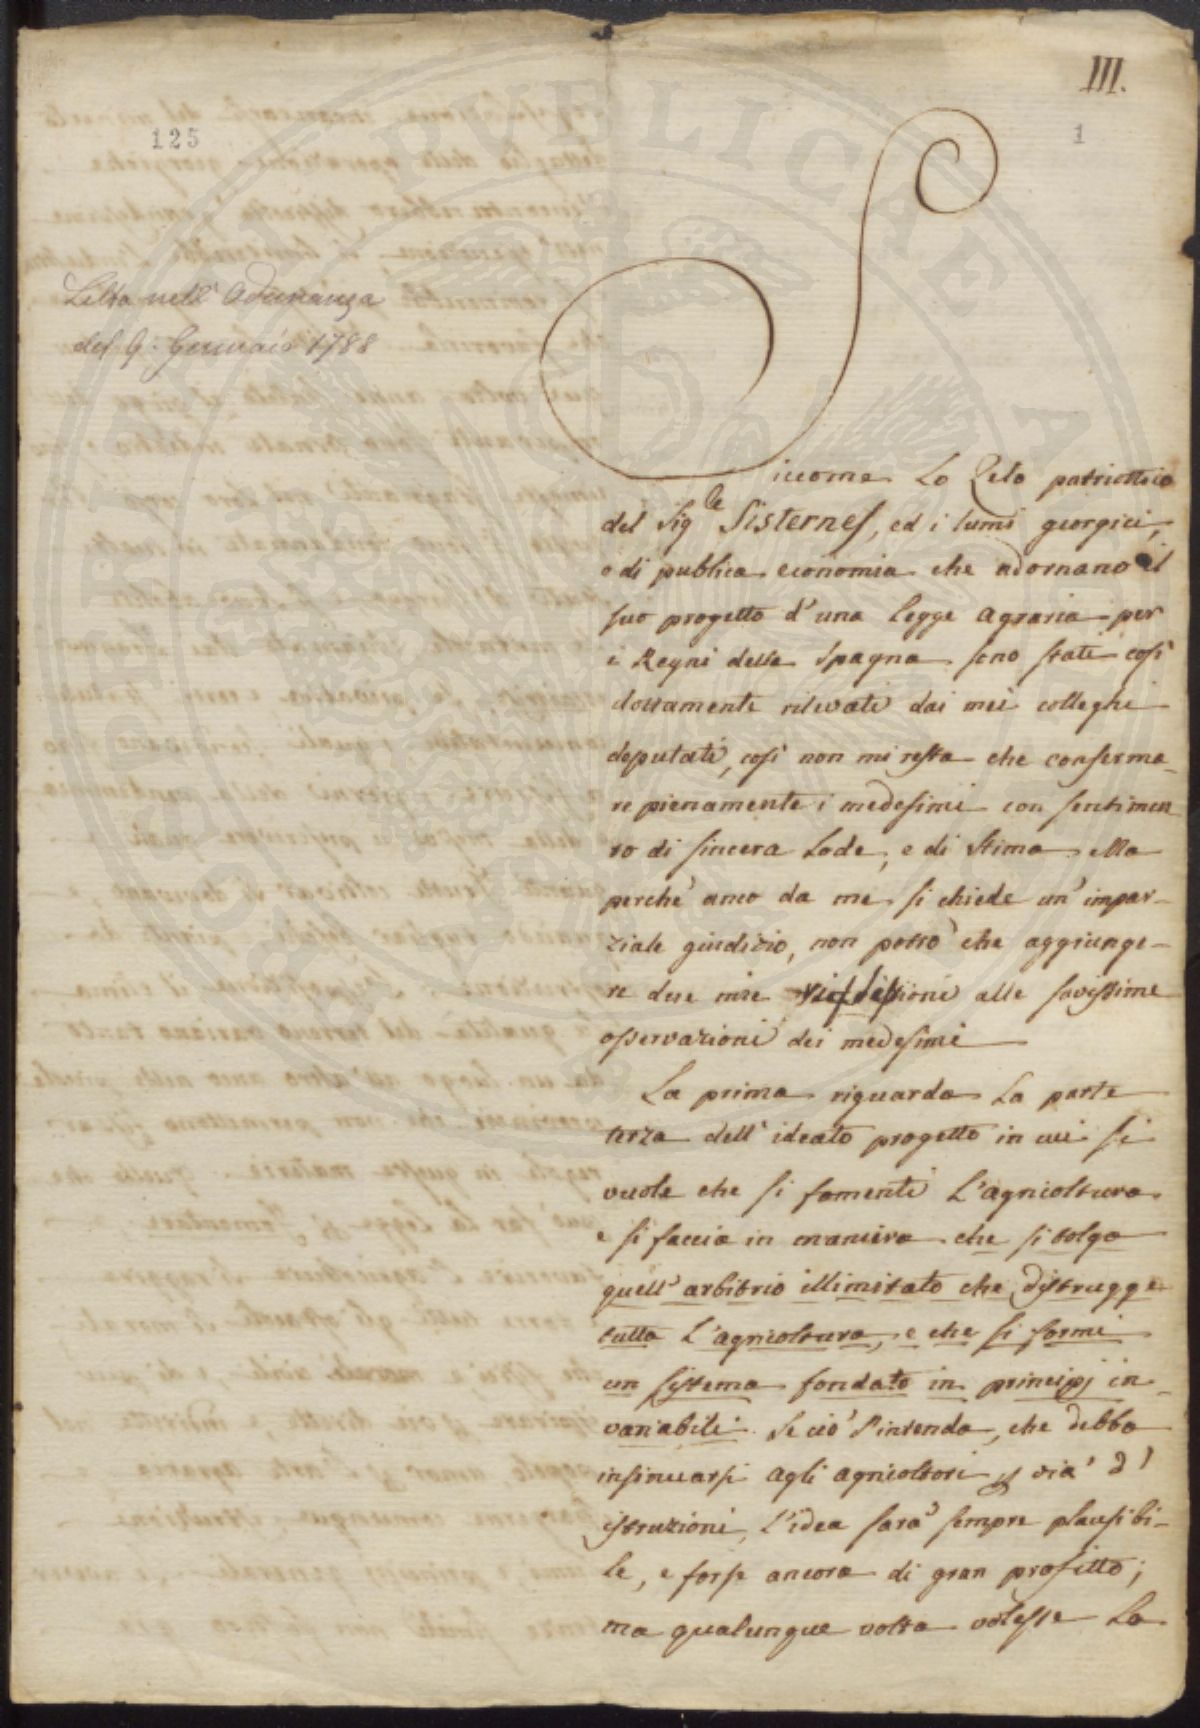 III.
125
1
Letta nell' Adunanza
del 9. Gennaio 1788
Siccome Lo Zelo patriottico
del Sig.le Sisternes, ed i lumi georgici,
e di publica economia che adornano il
suo progetto d'una Legge Agraria per
i Regni della Spagna sono stati così
dottamente rilevati dai miei colleghi
deputati, così non mi resta che conferma-
re pienamente i medesimi con sentimen-
to di sincera Lode, e di stima. Ma
perchè anco da me si chiede un' impar-
ziale giudizio, non potrò che aggiunge-
re due mie riflessioni alle savissime
osservazioni dei medesimi
La prima riguarda La parte
terza dell' ideato progetto in cui si
vuole che si fomenti L'agricoltura
e si faccia in maniera che si tolga
quell' arbitrio illimitato che distrugge
tutta L'agricoltura, e che si formi
un sistema fondato in principj in-
variabili. Se ciò s'intenda, che debba
insinuarsi agli agricoltori p via d'
istruzioni, L'idea sarà sempre plausibi-
le, e forse ancora di gran profitto;
ma qualunque volta volesse La